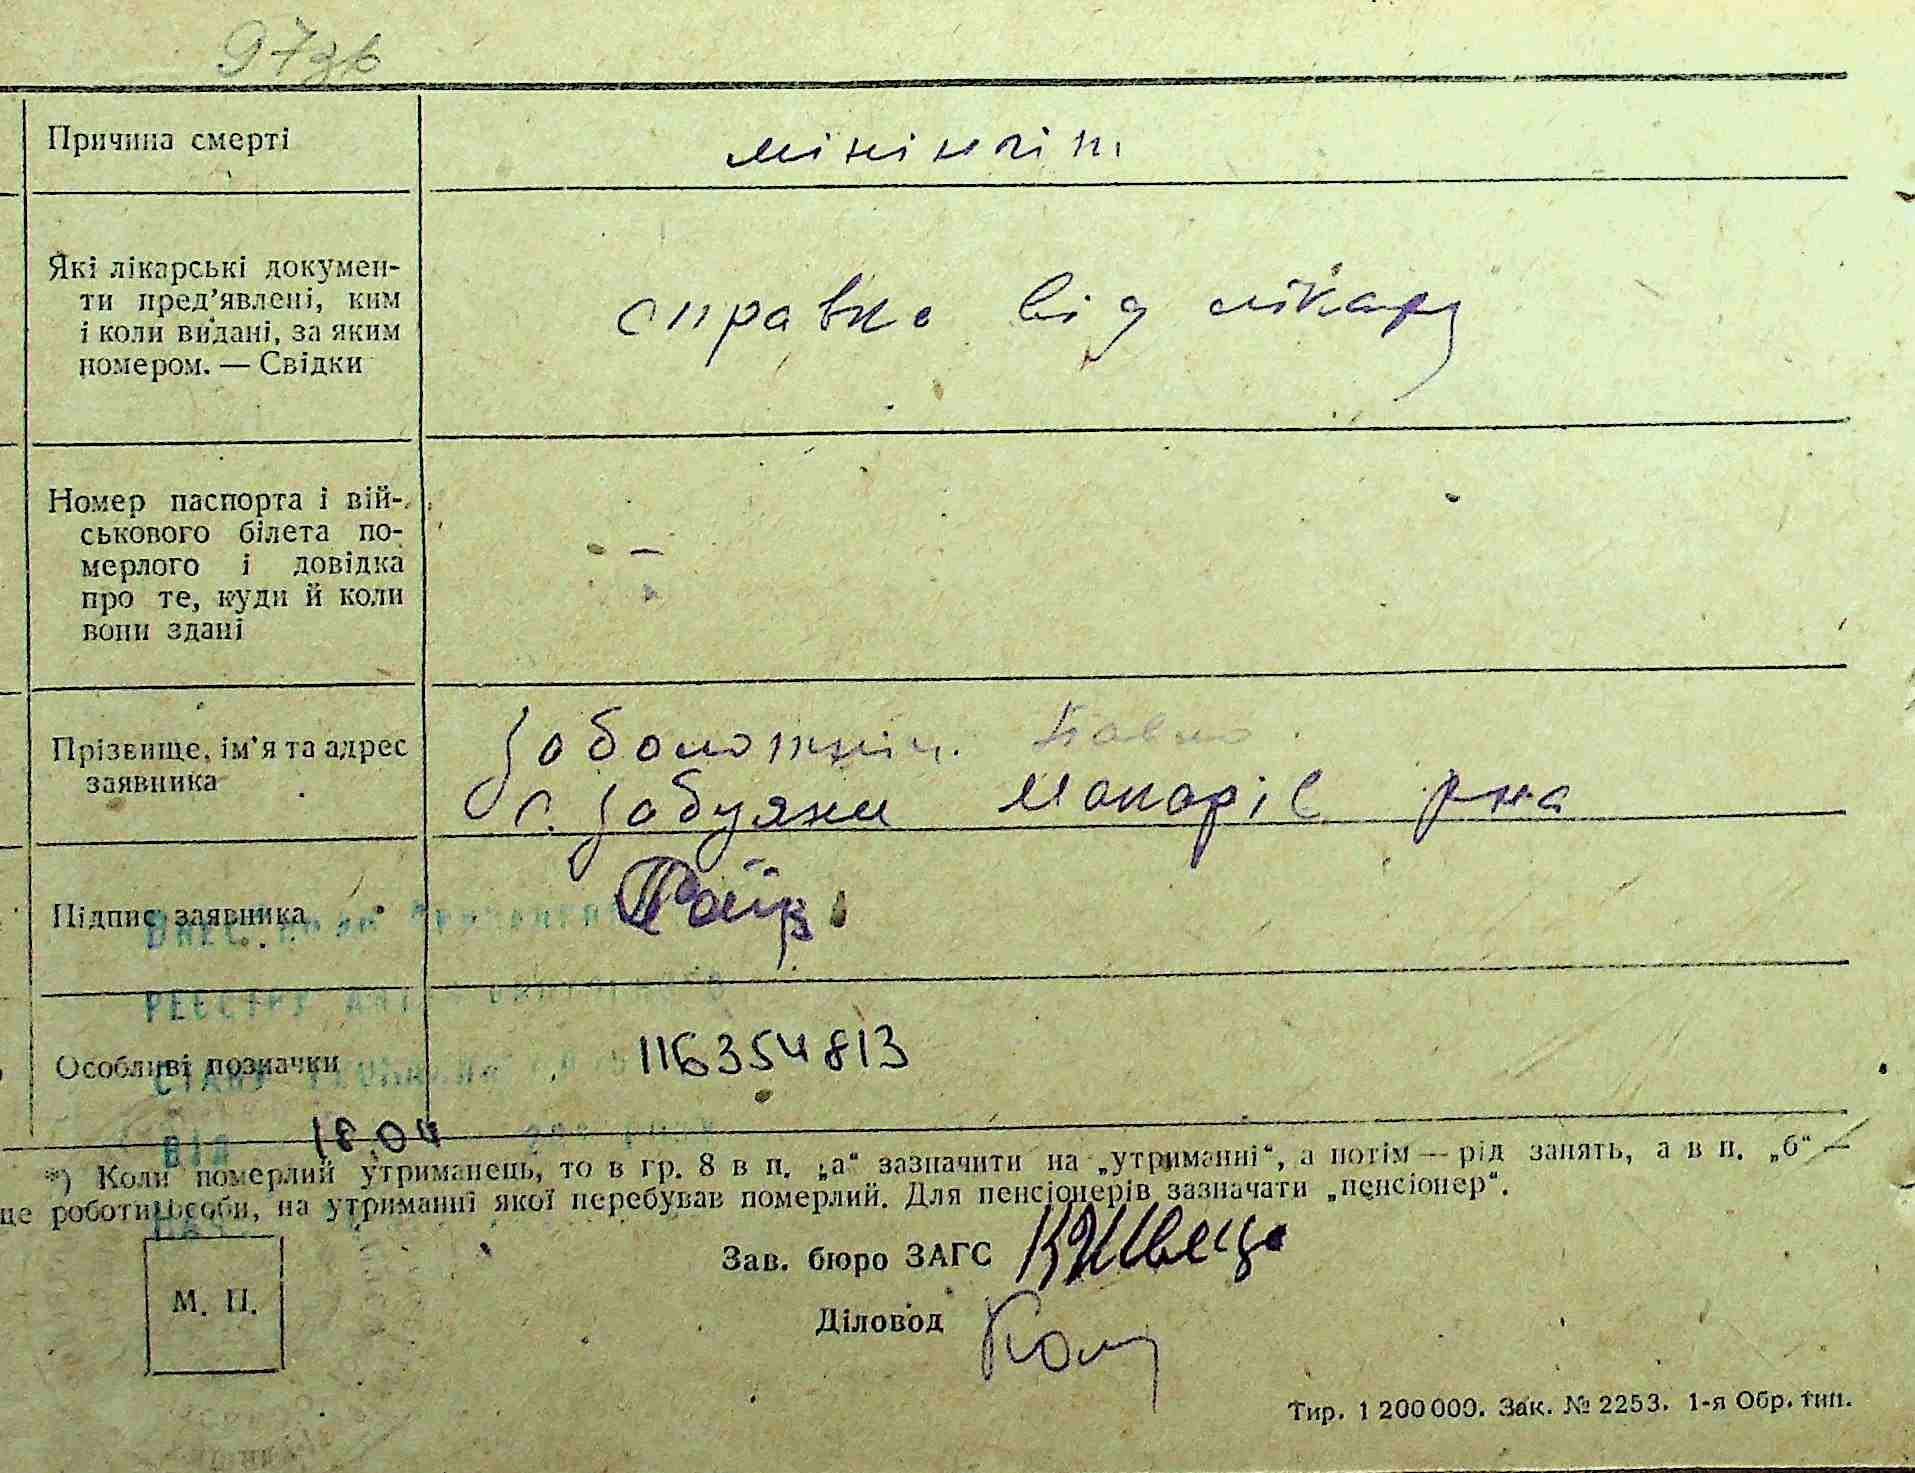 97зв
Причина смерті
мінінгіт
Які лікарські докумен-
ти пред’явлені, ким
і коли видані, за яким
номером. — Свідки
справка від лікаря
Номер паспорта і вій-
ськового білета по-
мерлого і довідка
про те, куди й коли
вони здані
—
Прізвище, ім’я та адрес
заявника
Заболотній Павло
с. Забуяни Макарів р-на
Підпис заявника
Особливі позначки
116354813
РЕЄСТРУ
СТАНУ
ВІД 18.04
*) Коли померлий утриманець, то в гр. 8 в п. „а“ зазначити на „утриманні“, а потім — рід занять, а в п. „б“ —
це роботи особи, на утриманні якої перебував померлий. Для пенсіонерів зазначати „пенсіонер“.
Зав. бюро ЗАГС
Діловод
М. П.
Тир. 1 200 000. Зак. № 2253. 1-я Обр. тип.